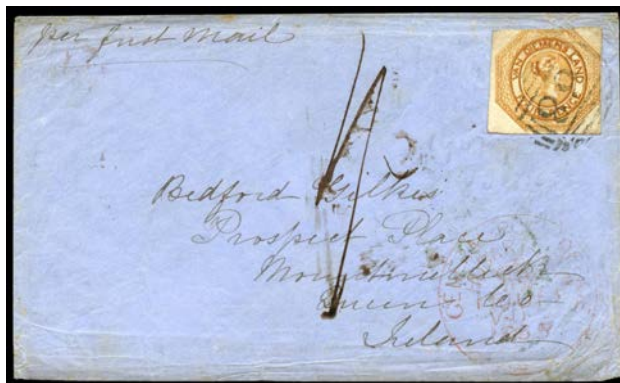 per first Mail
VAN DIEMENS LAND
PENCE
Bedford Gilkes
Prospect Place
Mountmellick
Queens Co
Ireland